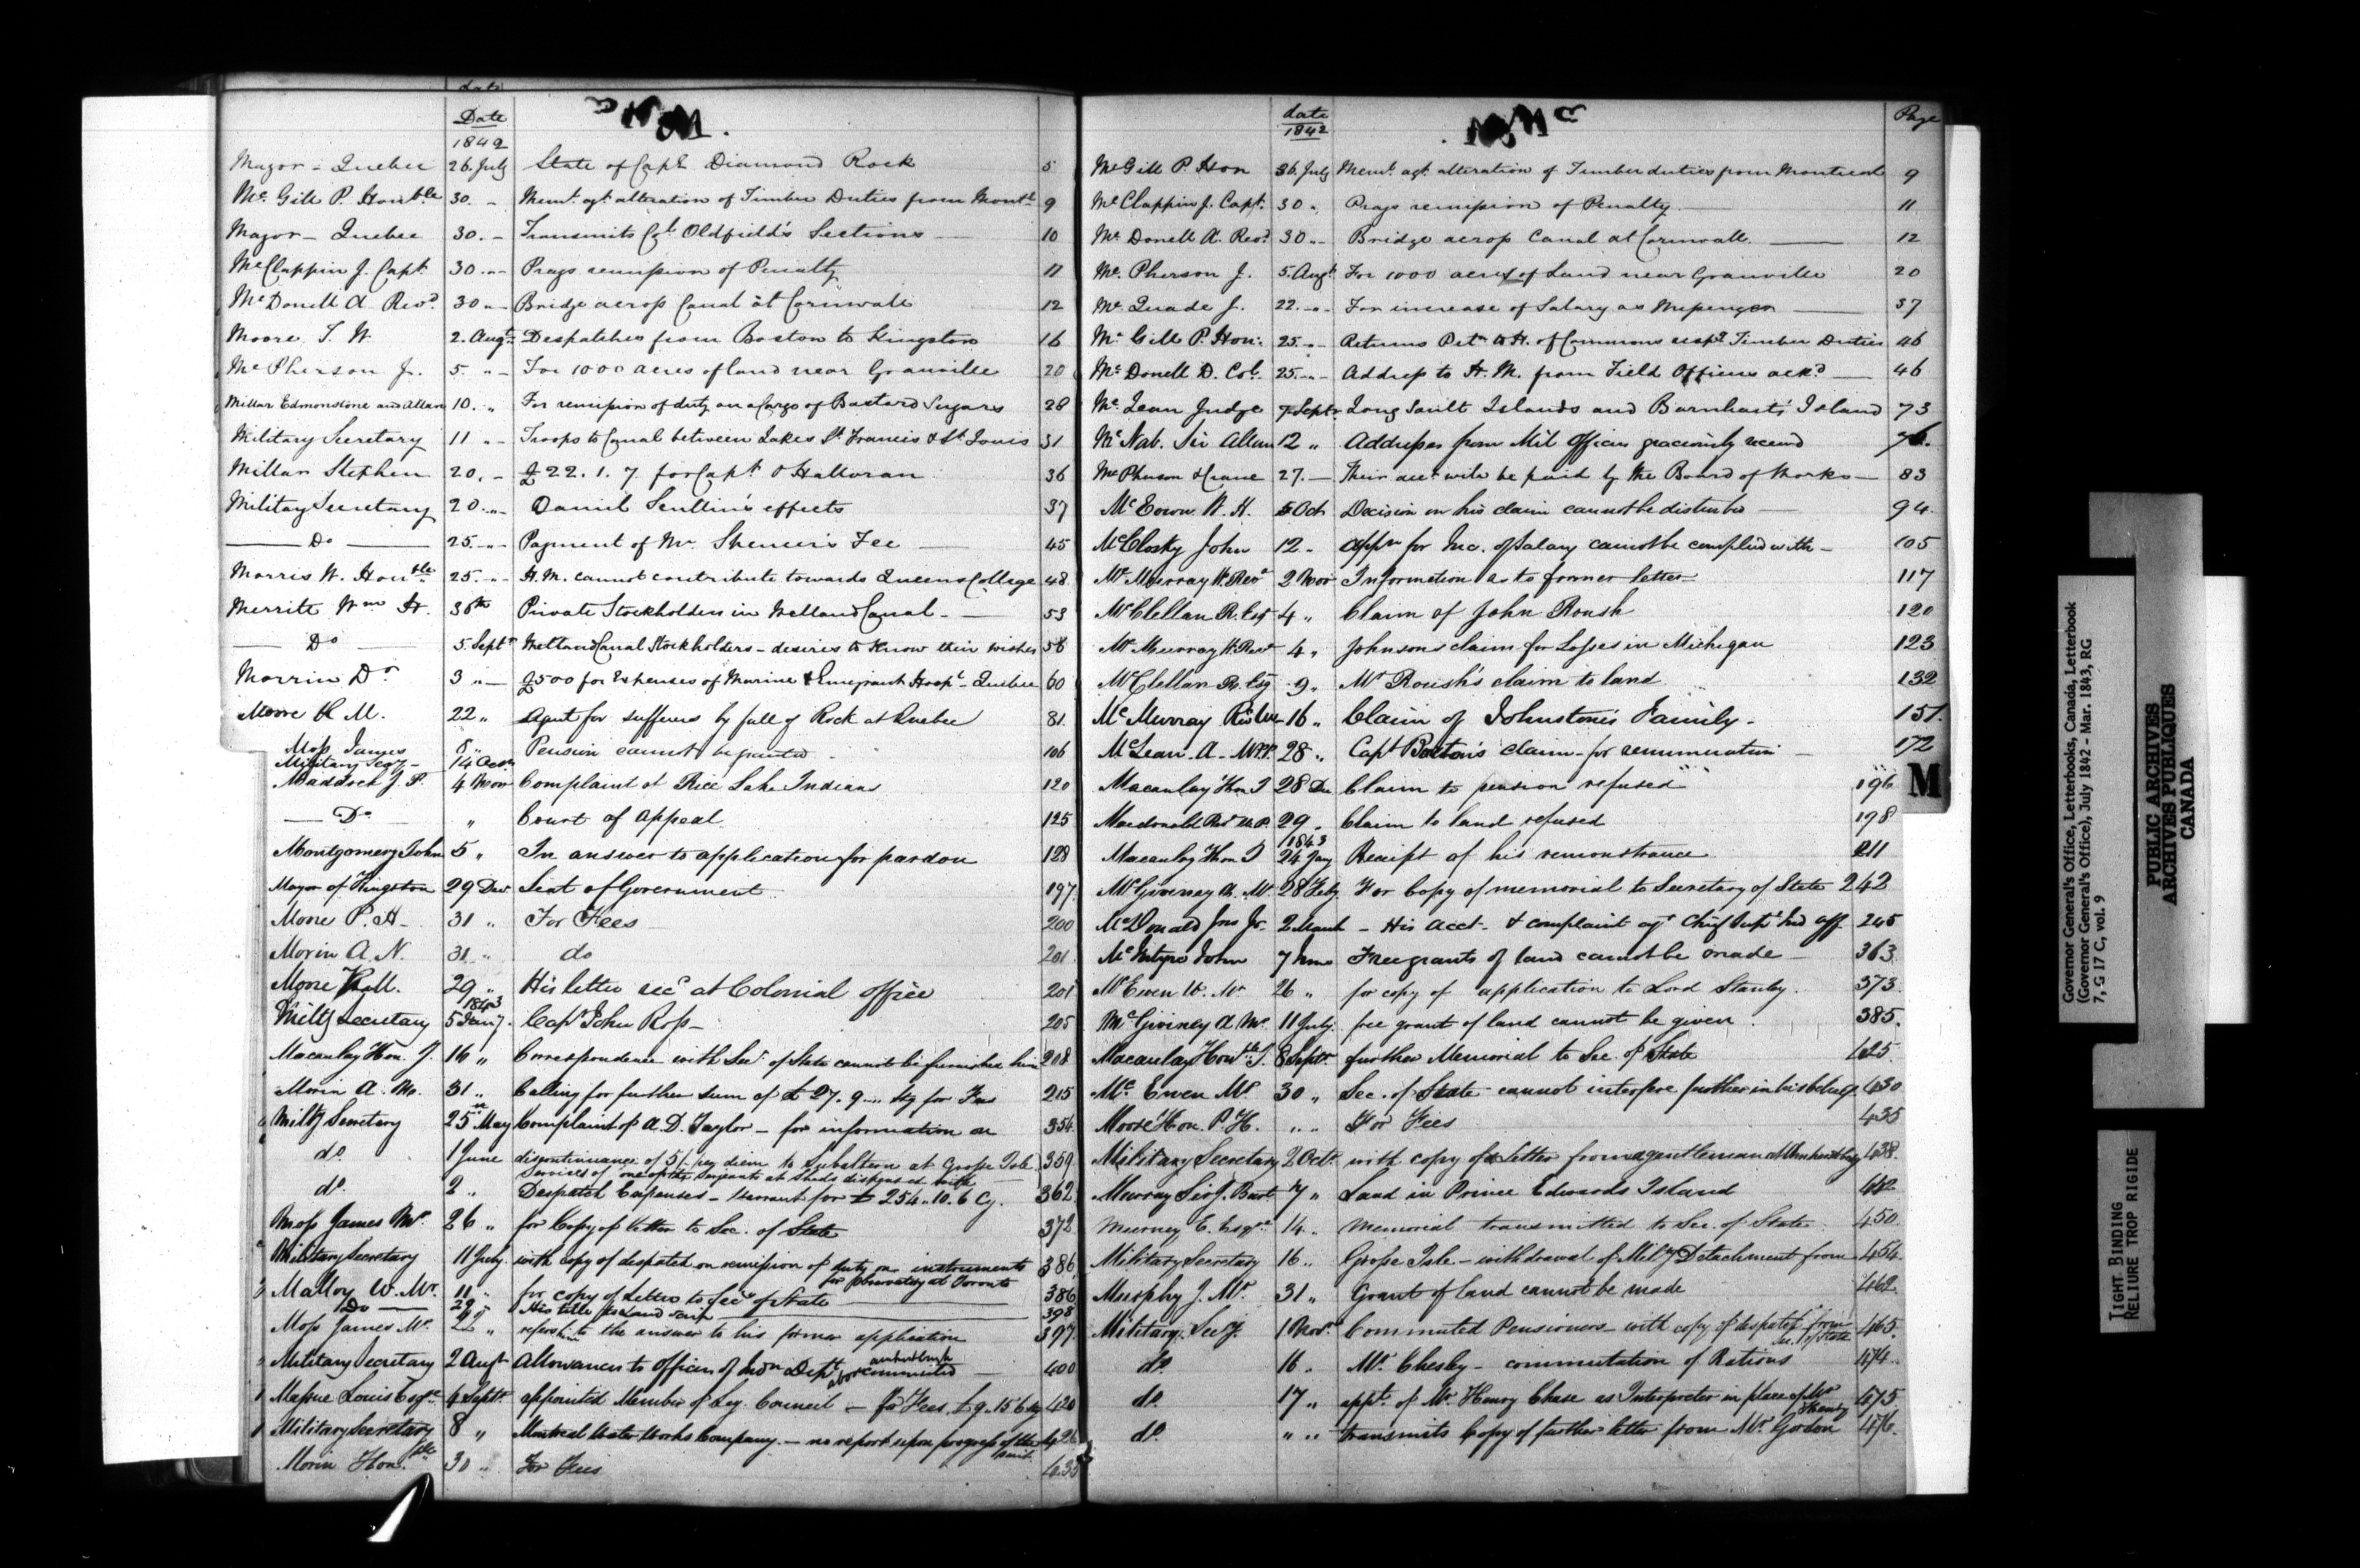 Date
1842
M.
Mayor - Quebec 26. July State of Cape Diamond Rock 5
McGill P. Honble 30. - Memt. agt. alteration of Timber Duties from Montl. 9
Mayor - Quebec 30. - Transmits Cpt. Oldfield's Sections 10
McClappin J. Capt. 30. - Prays remission of Penalty 11
McDonell A Revd. 30 - Bridge across Canal at Cornwall 12
Moore T. W. 2. Augt. Despatches from Boston to Kingston 16
McPherson J. 5. - For 1000 acres of land near Granville 20
Millar Edmonstone and Allan 10. " For remission of duty on a Cargo of Bastard Sugars 28
Military Secretary 11 " - Troops to Canal between Lakes St. Francis & St. Louis 31
Millar Stephen 20. - £22. 1. 7. for Capt. O'Halloran 36
Military Secretary 20. - Daniel Scullin's effects 37
Do 25. - Payment of Mr. Spencer's Fee 45
Morris W. Honble. 25. - H. M. cannot contribute towards Queens College 48
Merritt Wm. H. 30th Private Stockholders in Welland Canal - 53
Do 5. Septr. Welland Canal Stockholders - desires to know their wishes 56
Morrin Dr. 3 " - £500 for Expenses of Marine & Emigrant Hospl. - Quebec 60
Moore H M. 22 " Agent for sufferers by fall of Rock at Quebec 81.
Moss James 8 " Pension cannot be granted 106
Military Secy - 14 Oct
Maddock J. P. 4 Nov Complaint of Rice Lake Indians 120
Do " Court of Appeal 125
Montgomery John 5 " In answer to application for pardon 128
Mayor of Kingston 29 Decr Seat of Government 197
Moore P. H - 31 " For Fees 200
Morin A. N. 31 " do 201
Moore H. M. 29 " His letter recd. at Colonial office 201
1843
Milty Secretary 5 Jany. Capt. John Ross - 205
Macaulay Hon. J. 16 " Correspondence with Secy. of State cannot be furnished him 208
Morin A. N. 31 " Calling for further sum of £27. 9. - Stg for Fees 215
Milty Secretary 25 May Complaint of A. D. Taylor - for information on 354
do. 1 June discontinuance of 5/. per diem to Subaltern at Grosse Isle 359
Services of one of the Sergeants at Sheds dispensed with
do. 2 " Despatch Expenses - Warrant for £254. 10. 6 Cy. 362
Moss James Mr. 26 " for Copy of letter to Sec. of State 372
Military Secretary 11 July with copy of despatch on remission of duty on instruments 386
for observatory at Toronto
Malloy W. Mr. 11 " for copy of Letters to Secy of State 386
Do 29 " His title to Land Scrip 398
Moss James Mr. 29 " refers him to the answer to his former application 397
Military Secretary 2 Augt. Allowances to Officers of Indn Dept. 400
Amherstburgh
above commuted
Massue Louis Esqre. 4 Septr. appointed Member of Leg. Council - for Fees £9. 15. 6 stg 420
Military Secretary 8 " Montreal Water Works Company. - no report upon progress of the 426
suit.
Morin Honble. 30 " For Fees 435
date
1842
Mc
Page
McGill P. Hon 30. July Memt. agt. alteration of Timber duties from Montreal 9
McClappin J. Capt. 30 " Prays remission of Penalty 11
McDonell A. Revd. 30 " - Bridge across Canal at Cornwall. 12
McPherson J. 5. Augt. For 1000 acres of Land near Granville 20
McQuade J. 22. - For increase of Salary as Messenger 37
McGill P. Hon: 25. - Returns Petn. to H. of Commons respg. Timber Duties 46
McDonell D. Col. 25. - Address to H. M. from Field Officers ackd. 46
McLean Judge 7 Septr. Long Sault Islands and Barnhart's Island 73
McNab. Sir Allan 12 " Addresses from Mil Officers graciously received 76.
McPherson & Crane 27. - Their acct. will be paid by the Board of Works - 83
McEown W. H. 5 Oct Decision on his claim cannot be disturbed 94.
McClosky John 12 - Appn for Inc. of Salary cannot be complied with - 105
McMurray W. Revd 2 Nov Information as to former letter 117
McClellan R. Esq 4 " Claim of John Roush 120
McMurray W. Revd 4 " Johnsons claim for Losses in Michigan 123
McClellan R. Esq 9 " Mr Roush's claim to land 132
McMurray 16 " Claim of Johnstone's Family - 151.
McLean A - M.P.P. 28 " Capt Baston's claim for remuneration 172
M
Macaulay Hon J 28 De Claim to pension refused 196
Macdonald 29 " Claim to land refused 198
1843
Macaulay Hon J 24 Jany Receipt of his remonstrance 211
McGiverney A. Mr 28 Feby For Copy of memorial to Secretary of State 242
McDonald Jno Jr. 2 March - His acct. & complaint agt Chief Supt. Ind Aff. 245
McIntyre John 7 June Free grants of land cannot be made 363
McEwen W. Mr 26 " for copy of application to Lord Stanley. 373
McGiverney A Mr. 11 July. free grant of land cannot be given. 385.
Macaulay Honble J. 8 Septr. further Memorial to Sec. of State 425
McEwen Mr 30 " Sec. of State cannot interfere further in his behalf. 430
Moore Hon. P. H. " " For Fees 435
Military Secretary 2 Octr. with copy of a Letter from a gentleman at Amherstburg 438.
Murray Sir J. Bart 7 " Land in Prince Edwards Island 442
Murney E. Esqre. 14 " Memorial transmitted to Sec. of State 450.
Military Secretary 16 " Grosse Isle - withdrawal of Mily Detachment from 454
Murphy J. Mr. 31 " Grant of land cannot be made 462
Military Secy. 1 Novr. Commuted Pensioners - with copy of despatch from 465.
Sec. of State
do. 16 " Mr. Chesley - commutation of Rations 474
do. 17 " appt. of Mr. Henry Chase as Interpreter in place of Mr 475.
Henry
do. " " transmits Copy of further letter from Mr. Gordon 476.
Governor General's Office, Letterbooks, Canada, Letterbook
(Governor General's Office), July 1842 - Mar. 1843, RG
7, G 17 C, vol. 9
PUBLIC ARCHIVES
ARCHIVES PUBLIQUES
CANADA
TIGHT BINDING
RELIURE TROP RIGIDE